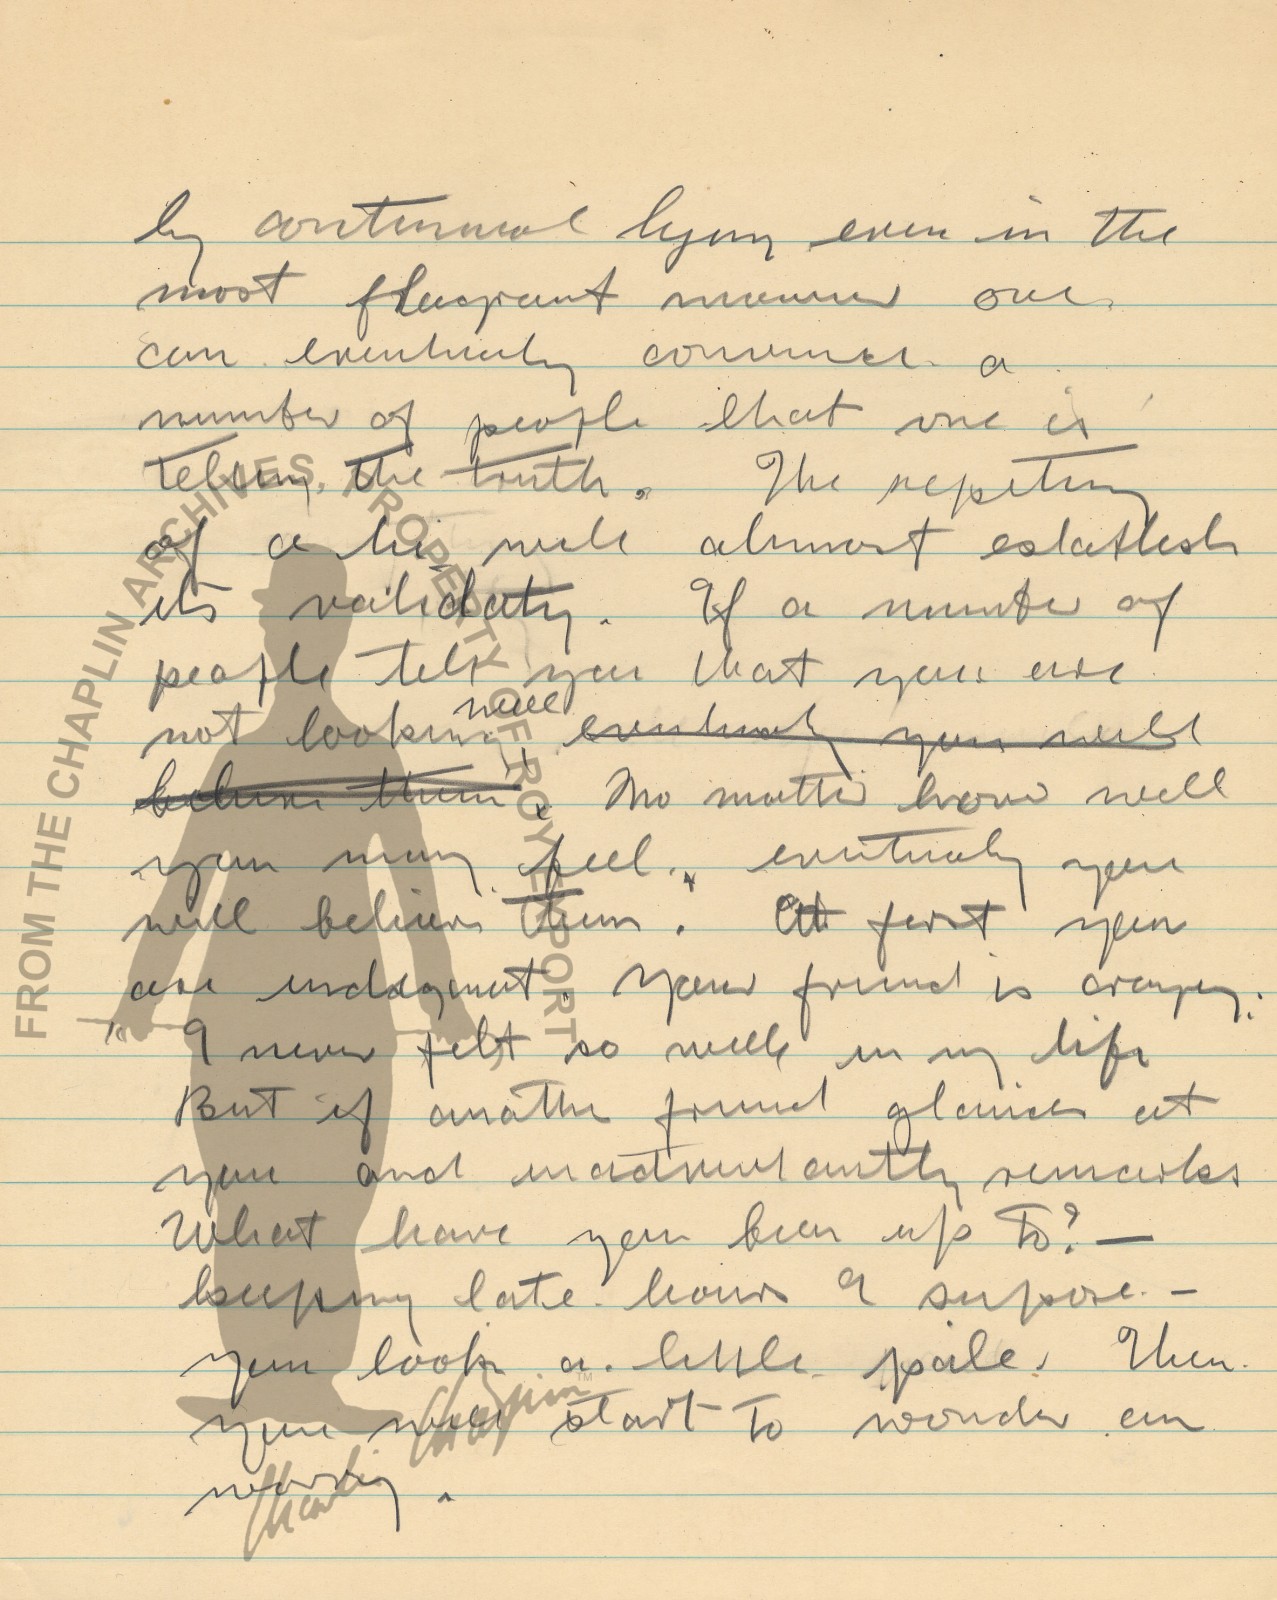 by continual lying even in the
most flagrant manner one
can eventualy convince a
number of people that one is
telling, the truth. The repeting
of a lie, will almost establish
its validaty. If a number of
people tell you that you are
not looking well eventualy you will
believe them. No matter how well
you may feel, eventualy you
will believe them. At first you
are indignant. Your friend is crazy.
"I never felt so well in my life
But if another friend glances at
you and inadvertantly remarks
What have you been up to? —
keeping late hours I supose —
you look a little pale. Then
you will start to wonder an
worry.
FROM THE CHAPLIN ARCHIVES, PROPERTY OF ROY EXPORT
Charlie Chaplin™